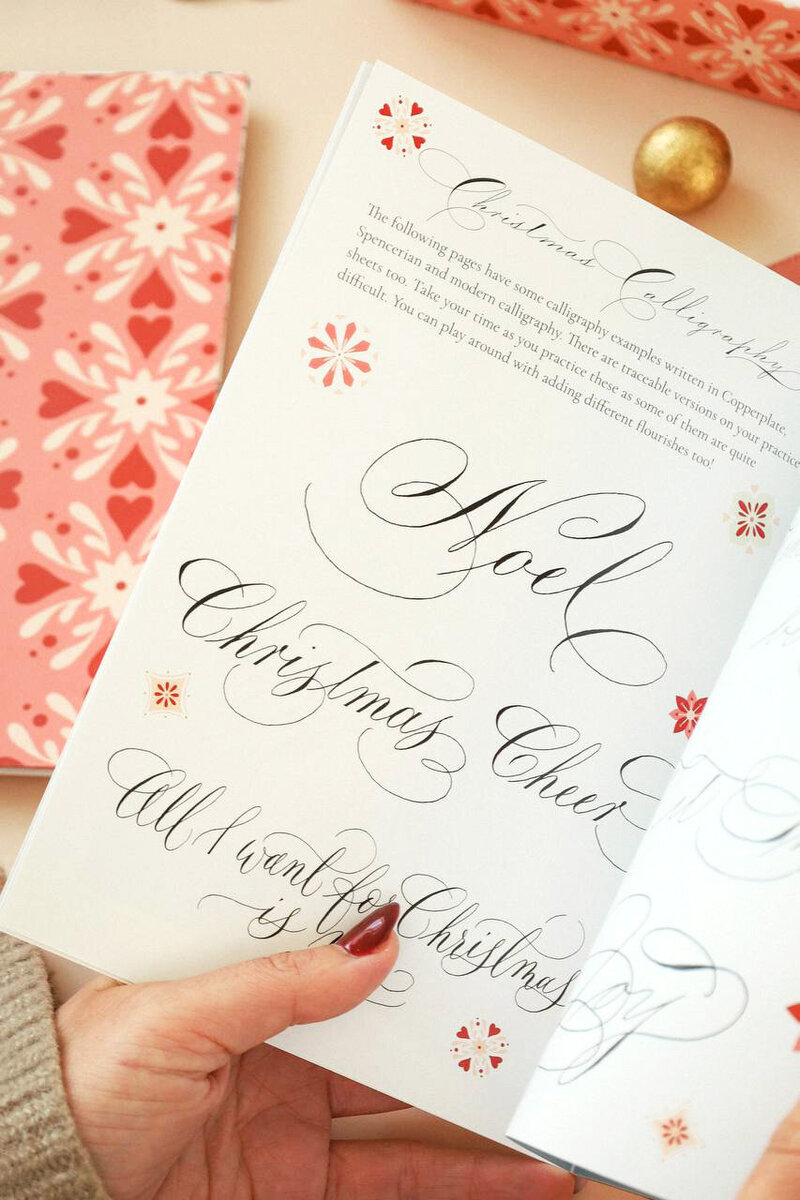 Christmas Calligraphy
The following pages have some calligraphy examples written in Copperplate,
Spencerian and modern calligraphy. There are traceable versions on your practice
sheets too. Take your time as you practice these as some of them are quite
difficult. You can play around with adding different flourishes too!
Noel
Christmas
Cheer
All I want for Christmas
is
Joy